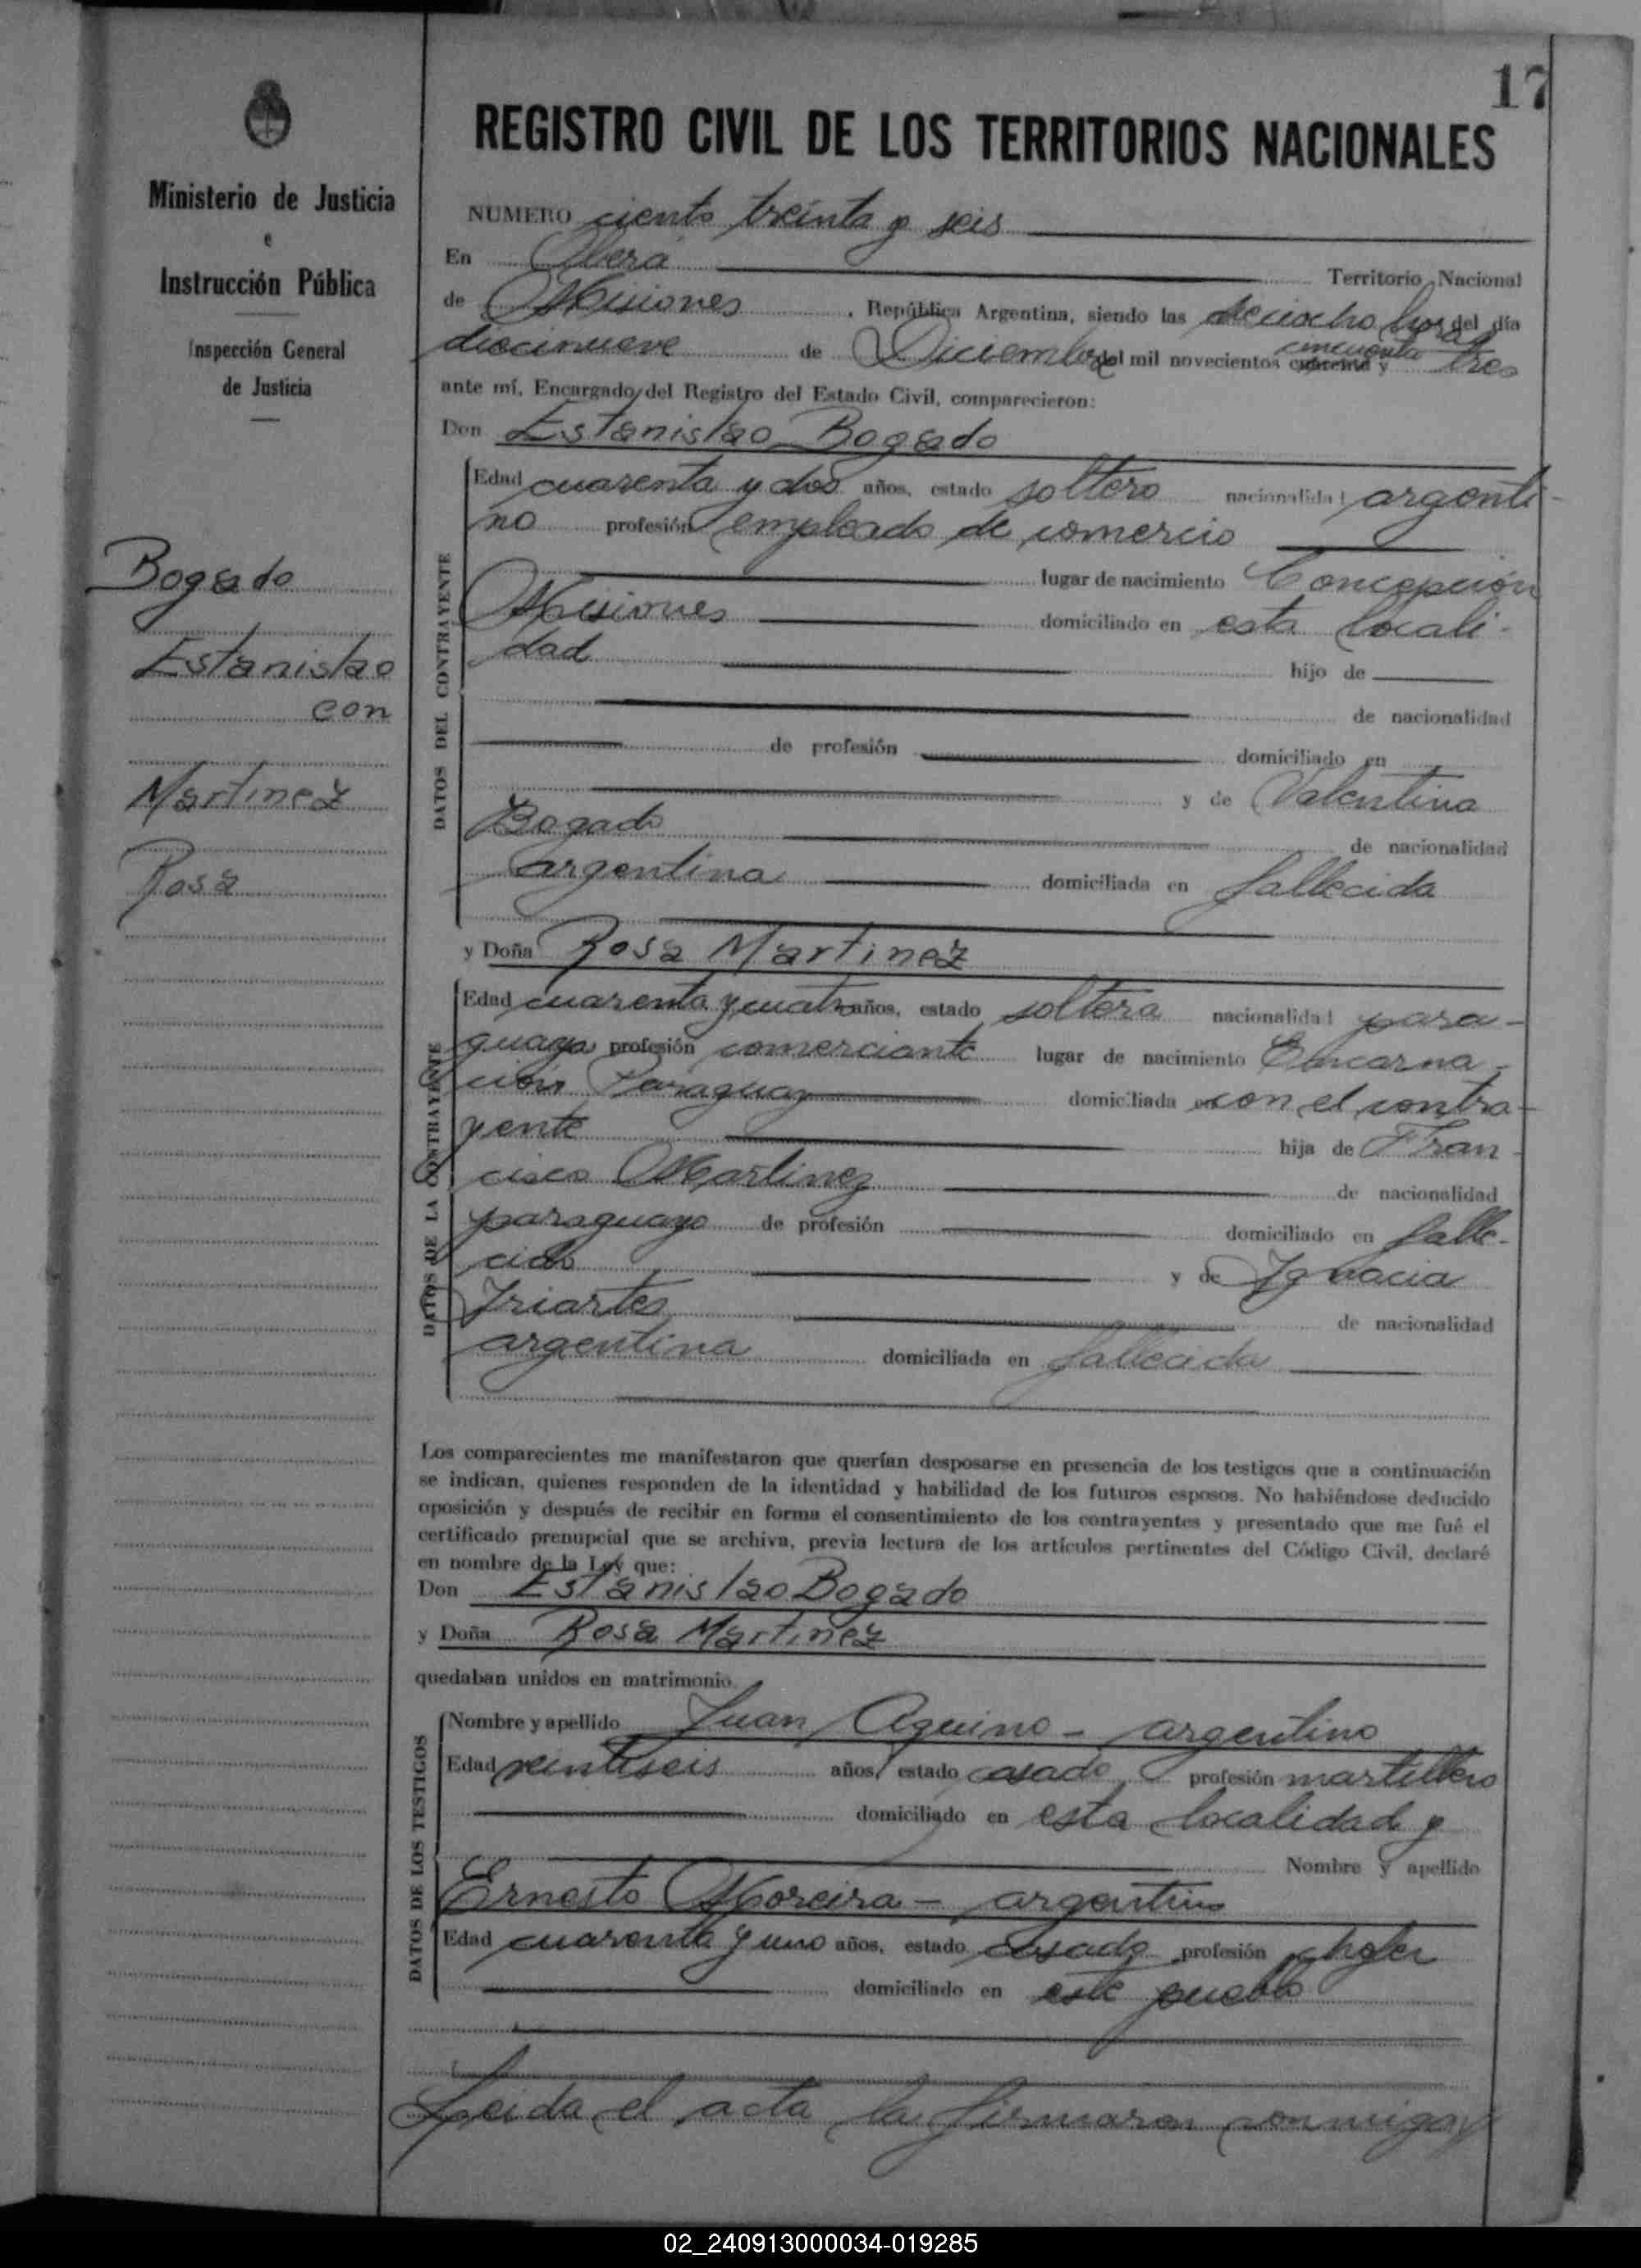 17
REGISTRO CIVIL DE LOS TERRITORIOS NACIONALES
Ministerio de Justicia
e
Instrucción Pública
Inspección General
de Justicia
Bogado
Estanislao
con
Martinez
Rosa
NUMERO ciento treinta y seis
En Oberá Territorio Nacional
de Misiones, República Argentina, siendo las dieciocho horas del día
diecinueve de Diciembre del mil novecientos cincuenta y tres
ante mí, Encargado del Registro del Estado Civil, comparecieron:
Don Estanislao Bogado
DATOS DEL CONTRAYENTE
Edad cuarenta y dos años, estado soltero nacionalidad argenti-
no profesión empleado de comercio
lugar de nacimiento Concepción
Misiones domiciliado en esta locali-
dad hijo de
de nacionalidad
de profesión domiciliado en
y de Valentina
Bogado de nacionalidad
argentina domiciliada en fallecida
y Doña Rosa Martinez
DATOS DE LA CONTRAYENTE
Edad cuarenta y cuatro años, estado soltera nacionalidad para-
guaya profesión comerciante lugar de nacimiento Encarna-
ción Paraguay domiciliada en con el contra-
yente hija de Fran-
cisco Martinez de nacionalidad
paraguayo de profesión domiciliado en falle-
cido y de Ignacia
Iriartes de nacionalidad
argentina domiciliada en fallecida
Los comparecientes me manifestaron que querían desposarse en presencia de los testigos que a continuación
se indican, quienes responden de la identidad y habilidad de los futuros esposos. No habiéndose deducido
oposición y después de recibir en forma el consentimiento de los contrayentes y presentado que me fué el
certificado prenupcial que se archiva, previa lectura de los artículos pertinentes del Código Civil, declaré
en nombre de la Ley que:
Don Estanislao Bogado
y Doña Rosa Martinez
quedaban unidos en matrimonio.
DATOS DE LOS TESTIGOS
Nombre y apellido Juan Aquino - argentino
Edad veintiseis años, estado casado profesión martillero
domiciliado en esta localidad y
Nombre y apellido
Ernesto Moreira - argentino
Edad cuarenta y uno años, estado casado profesión chofer
domiciliado en este pueblo
Leida el acta la firmaron conmigo
02_240913000034-019285